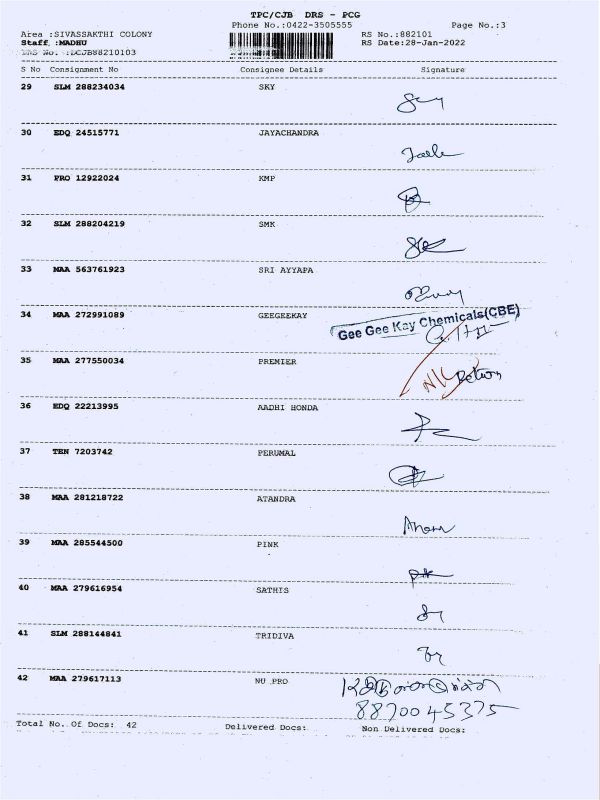 TPC/CJB DRS - PCG
Phone No.:0422-3505555 Page No.:3
Area :SIVASSAKTHI COLONY RS No.:882101
Staff :MADHU RS Date:28-Jan-2022
DRS No. :DCJB88210103
S No Consignment No Consignee Details Signature
29 SLM 288234034 SKY
30 EDQ 24515771 JAYACHANDRA
31 PRO 12922024 KMP
32 SLM 288204219 SMK
33 MAA 563761923 SRI AYYAPA
34 MAA 272991089 GEEGEEKAY
Gee Gee Kay Chemicals(CBE)
35 MAA 277550034 PREMIER
Return
36 EDQ 22213995 AADHI HONDA
37 TEN 7203742 PERUMAL
38 MAA 281218722 ATANDRA
39 MAA 285544500 PINK
40 MAA 279616954 SATHIS
41 SLM 288144841 TRIDIVA
42 MAA 279617113 NU PRO
8870045375
Total No. Of Docs: 42 Delivered Docs: Non Delivered Docs: